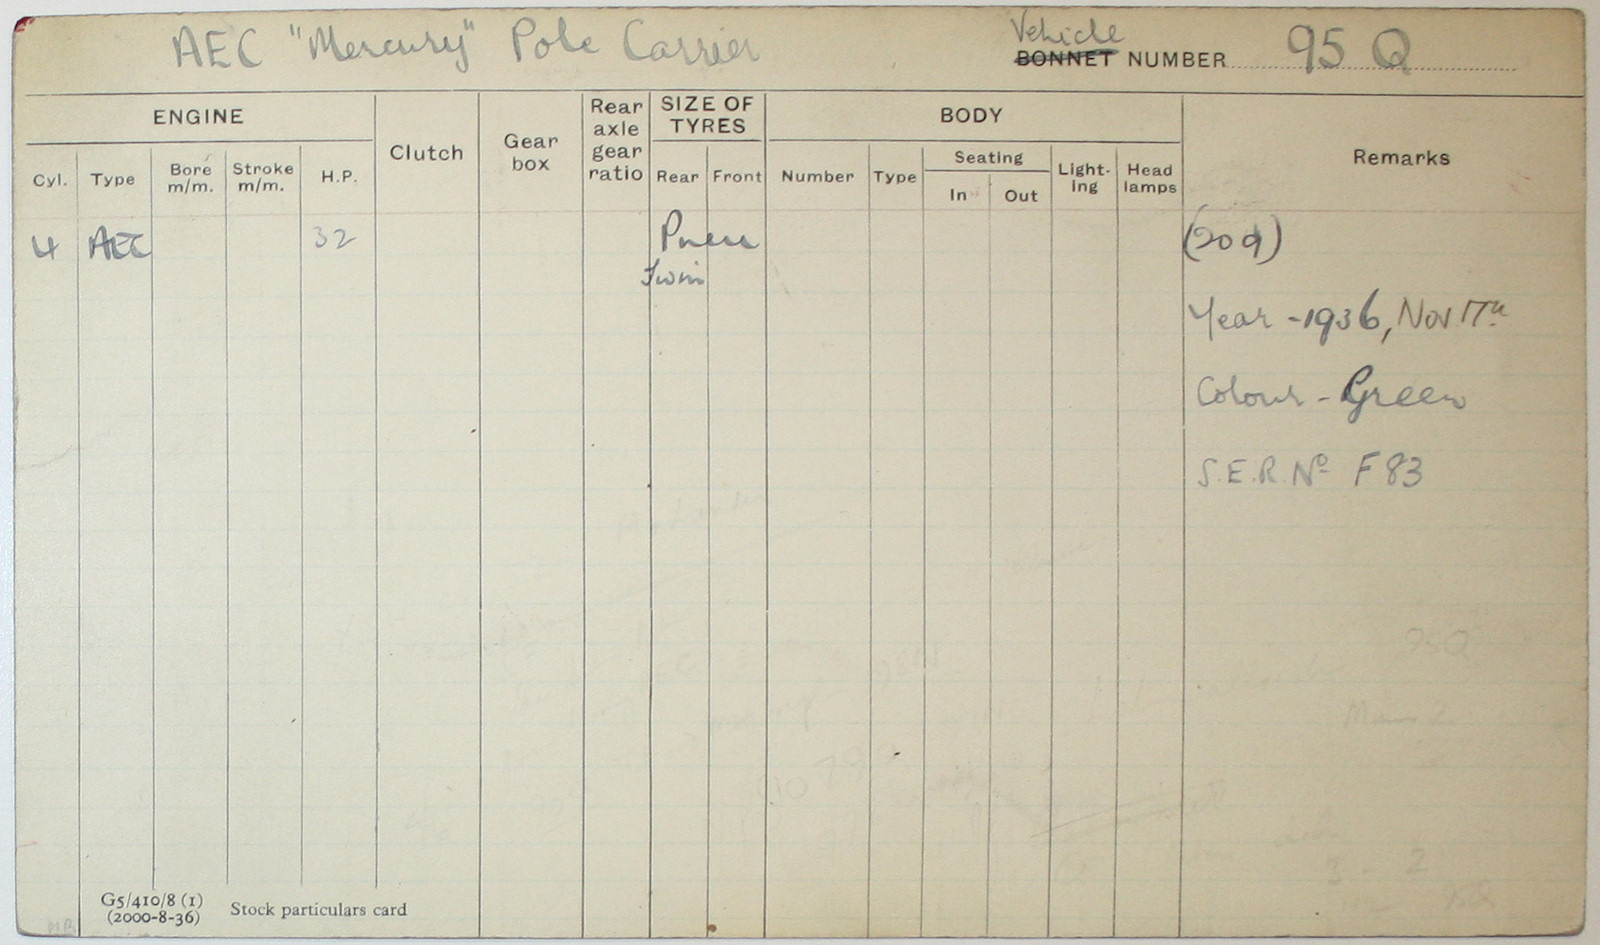 AEC "Mercury" Pole Carrier
Vehicle
BONNET NUMBER 95 Q
ENGINE
Clutch
Gear box
Rear axle gear ratio
SIZE OF TYRES
BODY
Remarks
Cyl.
Type
Bore m/m.
Stroke m/m.
H.P.
Rear
Front
Number
Type
Seating
In
Out
Light-ing
Head lamps
4 AEC 32 Pneu (20 9)
Twin
Year - 1936, Nov 17th
Colour - Green
S.E.R. No F 83
95Q
G5/410/8 (1)
(2000-8-36)
Stock particulars card